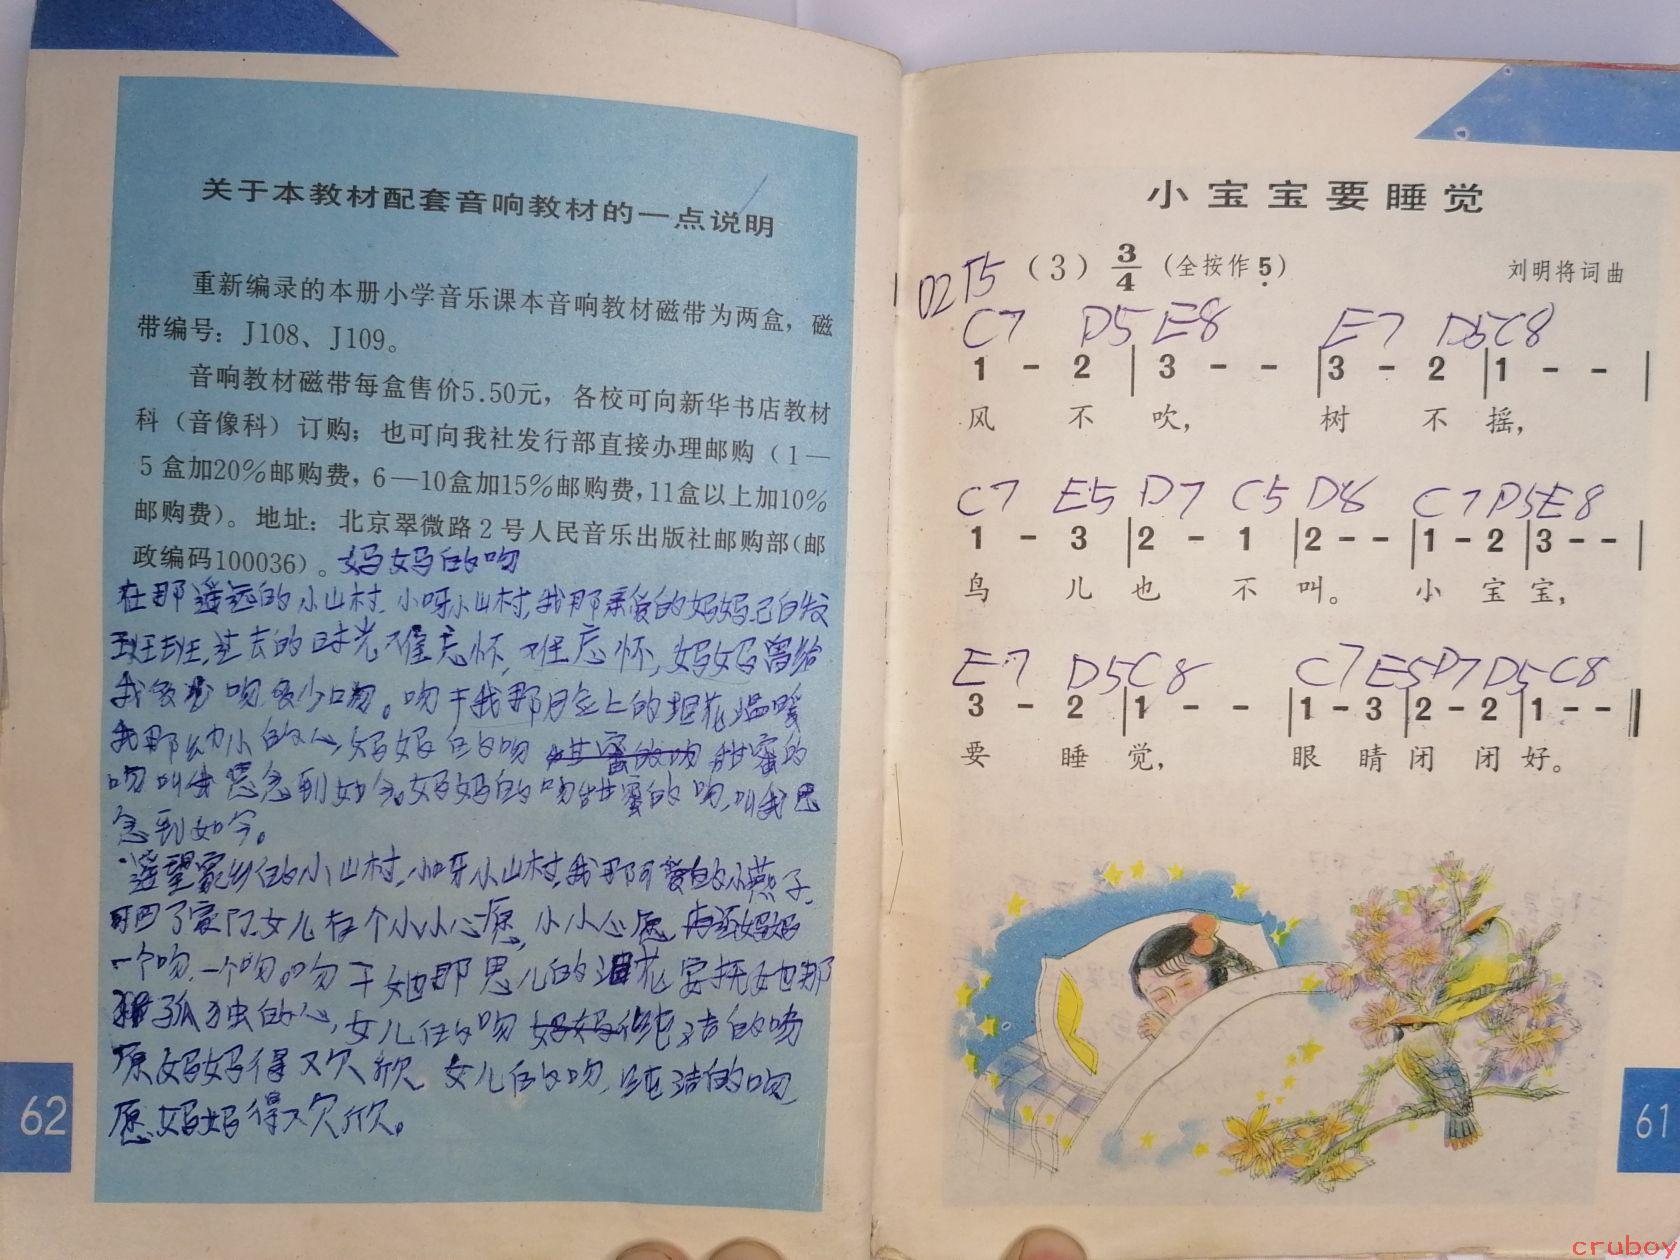 关于本教材配套音响教材的一点说明
重新编录的本册小学音乐课本音响教材磁带为两盒，磁
带编号：J108、J109。
音响教材磁带每盒售价5.50元，各校可向新华书店教材
科（音像科）订购；也可向我社发行部直接办理邮购（1—
5盒加20%邮购费，6—10盒加15%邮购费，11盒以上加10%
邮购费）。地址：北京翠微路2号人民音乐出版社邮购部（邮
政编码100036）。妈妈的吻
在那遥远的小山村，小呀小山村，我那亲爱的妈妈已白发
班班，过去的时光难忘怀，难忘怀，妈妈曾给
我多少吻多少吻。吻干我那脸上的泪花温暖
我那幼小的心，妈妈的吻 甜蜜的吻 甜蜜的
吻叫我思念到如今。妈妈的吻甜蜜的吻，叫我思
念到如今。
遥望家乡的小山村，小呀小山村，我那可爱的小燕子，
回了家门，女儿有个小小心愿，小小心愿，再还妈妈
一个吻，一个吻。吻干她那思儿的泪花 安抚她那
孤独的心，女儿的吻 妈妈 纯洁的吻
愿妈妈得又欠欣 女儿的吻，纯洁的吻
愿妈妈得又欠欣。
62
小宝宝要睡觉
D2 F5 （3）3/4（全按作5̣）
刘明将词曲
C7 D5 E8 E7 D5 C8
1 - 2 | 3 - - | 3 - 2 | 1 - - |
风 不 吹， 树 不 摇，
C7 E5 D7 C5 D8 C7 D5 E8
1 - 3 | 2 - 1 | 2 - - | 1 - 2 | 3 - - |
鸟 儿 也 不 叫。 小 宝 宝，
E7 D5 C8 C7 E5 D7 D5 C8
3 - 2 | 1 - - | 1 - 3 | 2 - 2 | 1 - - ‖
要 睡 觉， 眼 睛 闭 闭 好。
61
cruboy